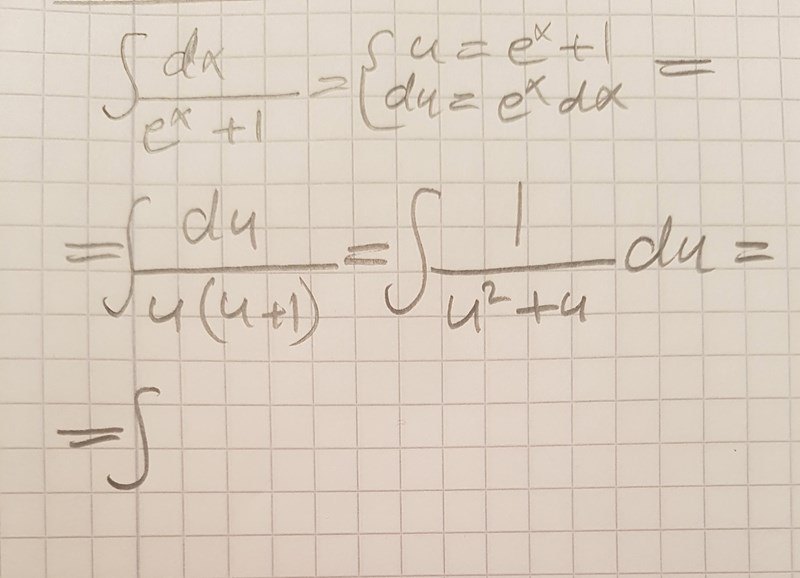 ∫ dx / (eˣ + 1) = { u = eˣ + 1 =
du = eˣ dx
= ∫ du / (u(u+1)) = ∫ 1 / (u² + u) du =
= ∫